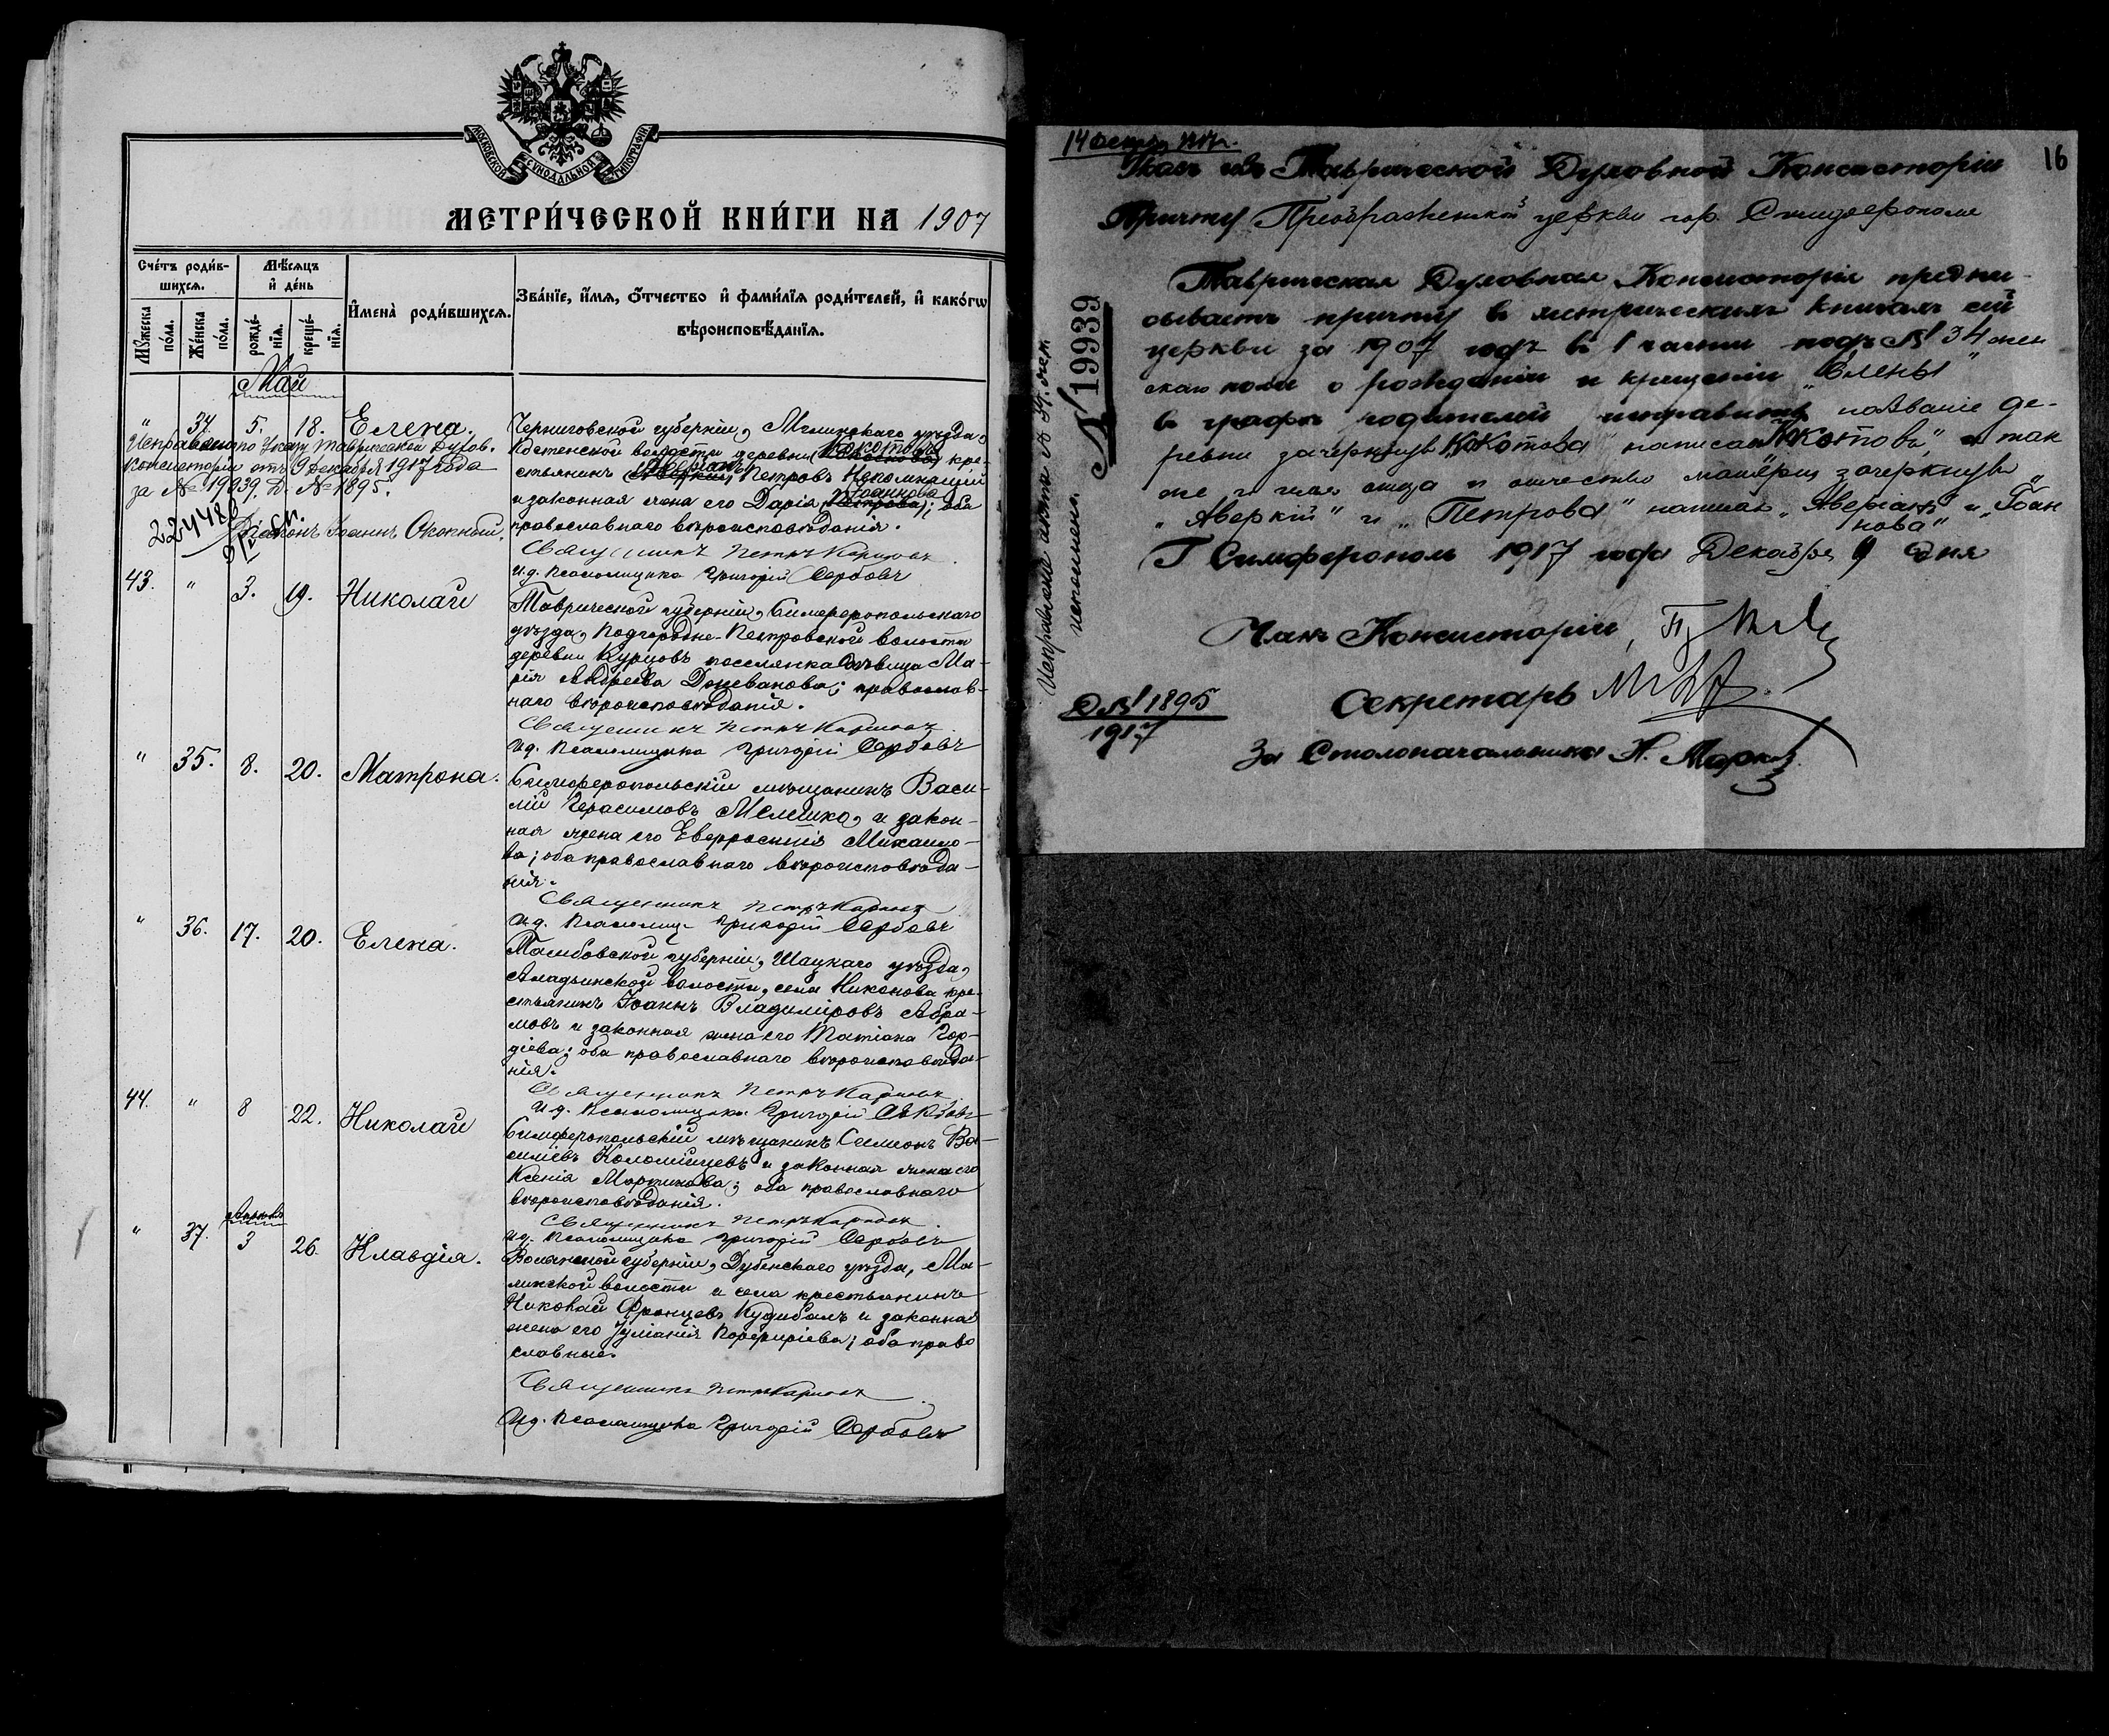 МОСКОВСКОЙ СѴНОДАЛЬНОЙ ТИПОГРАФІИ
МЕТРИ́ЧЕСКОЙ КНИ́ГИ НА 1907
Сче́тъ роди́в-
шихся.
Мѣ́сяцъ
и҆ де́нь
Мꙋ́жеска по́ла.
Же́нска по́ла.
рожде́-
нїя.
креще́-
нїя.
И҆мена̀ роди́вшихся.
Зва́нїе, и҆́мя, ѻ҆́тчество и҆ фами́лїя роди́телей, и҆ како́гѡ
вѣроисповѣ́данїя.
Май
" 34. 5. 18. Елена.
Исправлено по Указу Таврической Духов.
Консисторіи отъ 9 декабря 1917 года
за № 19939. Д. № 1895.
224480
Діаконъ Іоаннъ Ококный.
Черниговской губерніи, Мглинскаго уѣзда,
Костенской волости деревни Кокотова кре-
стьянинъ Аверкій Аверіанъ Петровъ Непомнящій
и законная жена его Дарія Петрова Іоаннова; оба
православнаго вѣроисповѣданія.
Священникъ Петръ Карповъ
И.д. Псаломщика Григорій Сербовъ
43. " 3. 19. Николай
Таврической губерніи, Симферопольскаго
уѣзда, Подгородне-Петровской волости
деревни Курцовъ поселянка дѣвица Ма-
рія Андреева Доневанова; православ-
наго вѣроисповѣданія.
Священникъ Петръ Карповъ
И.д. Псаломщика Григорій Сербовъ
" 35. 8. 20. Матрона.
Симферопольскій мѣщанинъ Васи-
лій Герасимовъ Мелешко, и закон-
ная жена его Евфросинія Михаило-
ва; оба православнаго вѣроисповѣда-
нія.
Священникъ Петръ Карповъ
И.д. Псаломщ. Григорій Сербовъ
" 36. 17. 20. Елена.
Тамбовской губерніи, Шацкаго уѣзда,
Аладьинской волости, села Никонова кре-
стьянинъ Іоаннъ Владиміровъ Абра-
мовъ и законная жена его Татіана Гор-
діева; оба православнаго вѣроисповѣда-
нія.
Священникъ Петръ Карповъ
И.д. Псаломщика Григорій Сербовъ
44. " 8 22. Николай
Симферопольскій мѣщанинъ Симеонъ Ва-
силіевъ Коломійцевъ и законная жена его
Ксенія Мартинова; оба православнаго
вѣроисповѣданія.
Священникъ Петръ Карповъ
И.д. Псаломщика Григорій Сербовъ
Апрѣль
" 37. 3 26. Клавдія.
Волынской губерніи, Дубенскаго уѣзда, Ма-
линской волости и села крестьянинъ
Николай Францевъ Кудибалъ и законная
жена его Іуліанія Порфиріева; оба право
славные.
Священникъ Петръ Карповъ
И.д. Псаломщика Григорій Сербовъ
16
Указъ изъ Таврической Духовной Консисторіи
Причту Преображенской церкви гор. Симферополя
Таврическая Духовная Консисторія предпи-
сываетъ причту въ метрическихъ книгахъ сей
церкви за 1907 годъ въ I части подъ № 34 жен
скаго пола о рожденіи и крещеніи „Елены"
въ графѣ родителей исправить названіе де-
ревни зачеркнувъ написавъ „Кокотова", а так
же и имя отца и отчество матери зачеркнувъ
„Аверкій" и „Петрова" написавъ „Аверіанъ" и „Іоан
нова"
Г Симферополь 1917 года Декабря 9 дня
Членъ Консисторіи,
Секретарь
За Столоначальника Н.
№ 19939
Исправленіе акта № 34.
исполнено.
Д. № 1895
1917